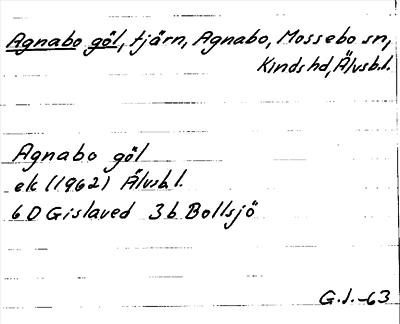 Agnabo göl, tjärn, Agnabo, Mossebo sn,
Kinds hd, Älvsb.l.
Agnabo göl
ek (1962) Älvsb.l.
6D Gislaved 3b Bollsjö
G.I.-63